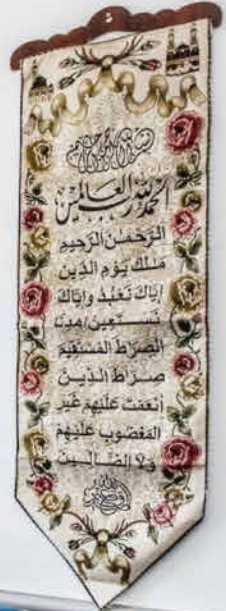 بسم الله الرحمن الرحيم
الحمد لله رب العالمين
الرحمن الرحيم
ملك يوم الدين
إياك نعبد وإياك
نستعين اهدنا
الصراط المستقيم
صراط الذين
أنعمت عليهم غير
المغضوب عليهم
ولا الضالين